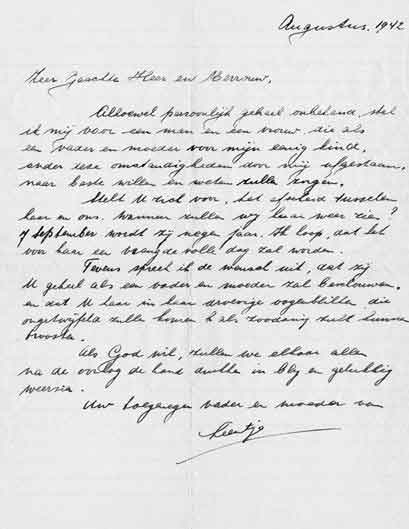 Augustus. 1942
Zeer Geachte Heer en Mevrouw,
Alhoewel persoonlijk geheel onbekend, stel
ik mij voor een man en een vrouw, die als
een vader en moeder voor mijn eenig kind,
onder deze omstandigheden door mij afgestaan,
naar beste willen en weten zullen zorgen.
Stelt U zich voor, het afscheid tusschen
haar en ons. Wanneer zullen wij haar weer zien?
7 September wordt zij negen jaar. Ik hoop, dat het
voor haar een vreugde volle dag zal worden.
Tevens spreek ik de wensch uit, dat zij
U geheel als een vader en moeder zal beschouwen,
en dat U haar in haar droevige oogenblikken die
ongetwijfeld zullen komen haar als zoodanig zult kunnen
troosten.
Als God wil, zullen we elkaar allen
na de oorlog de hand drukken in blij en gelukkig
weerzien.
Uw toegenegen vader en moeder van